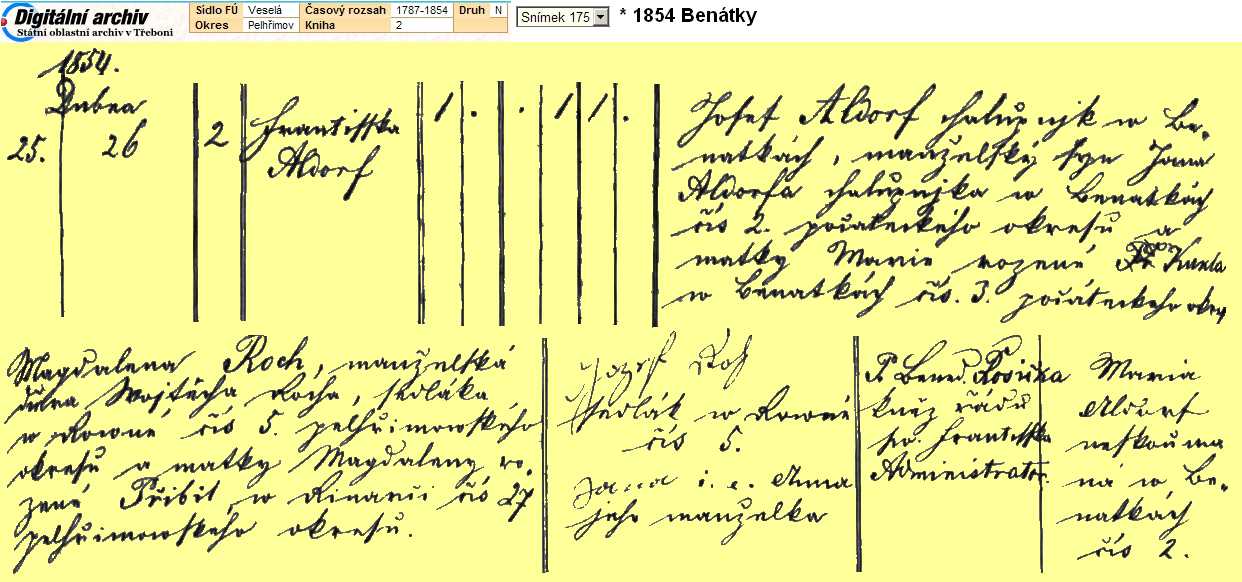 Digitální archiv
Státní oblastní archiv v Třeboni
Sídlo FÚ Veselá Časový rozsah 1787-1854 Druh N
Okres Pelhřimov Kniha 2
Snímek 175
* 1854 Benátky
1854.
Dubna
25. 26 2
Frantisska
Aldorf
1 . . 1 1 .
Josef Aldorf chalupnjk w Be-
natkách, manželský syn Jana
Aldorfa chalupnjka w Benatkách
čís 2. počateckého okresu a
matky Marie rozené Kukla
w Benatkách čís. 3. počáteckeho okr
Magdalena Roch, manželská
dcera Wojtěcha Rocha, sedláka
w Rowné čís 5. pelhřimowského
okresu a matky Magdaleny ro-
zené Přibil, w Rinarci čís 27
pelhřimowského okresu.
Jozef Roh
sedlák w Rowné
čís 5.
Jana i. e. Anna
jeho manzelka
P. Bened. Rosička
kněz řádu
sv. Frantisska
Administrator.
Maria
Aldorf
neskouma
ná w Be-
natkách
čís 2.